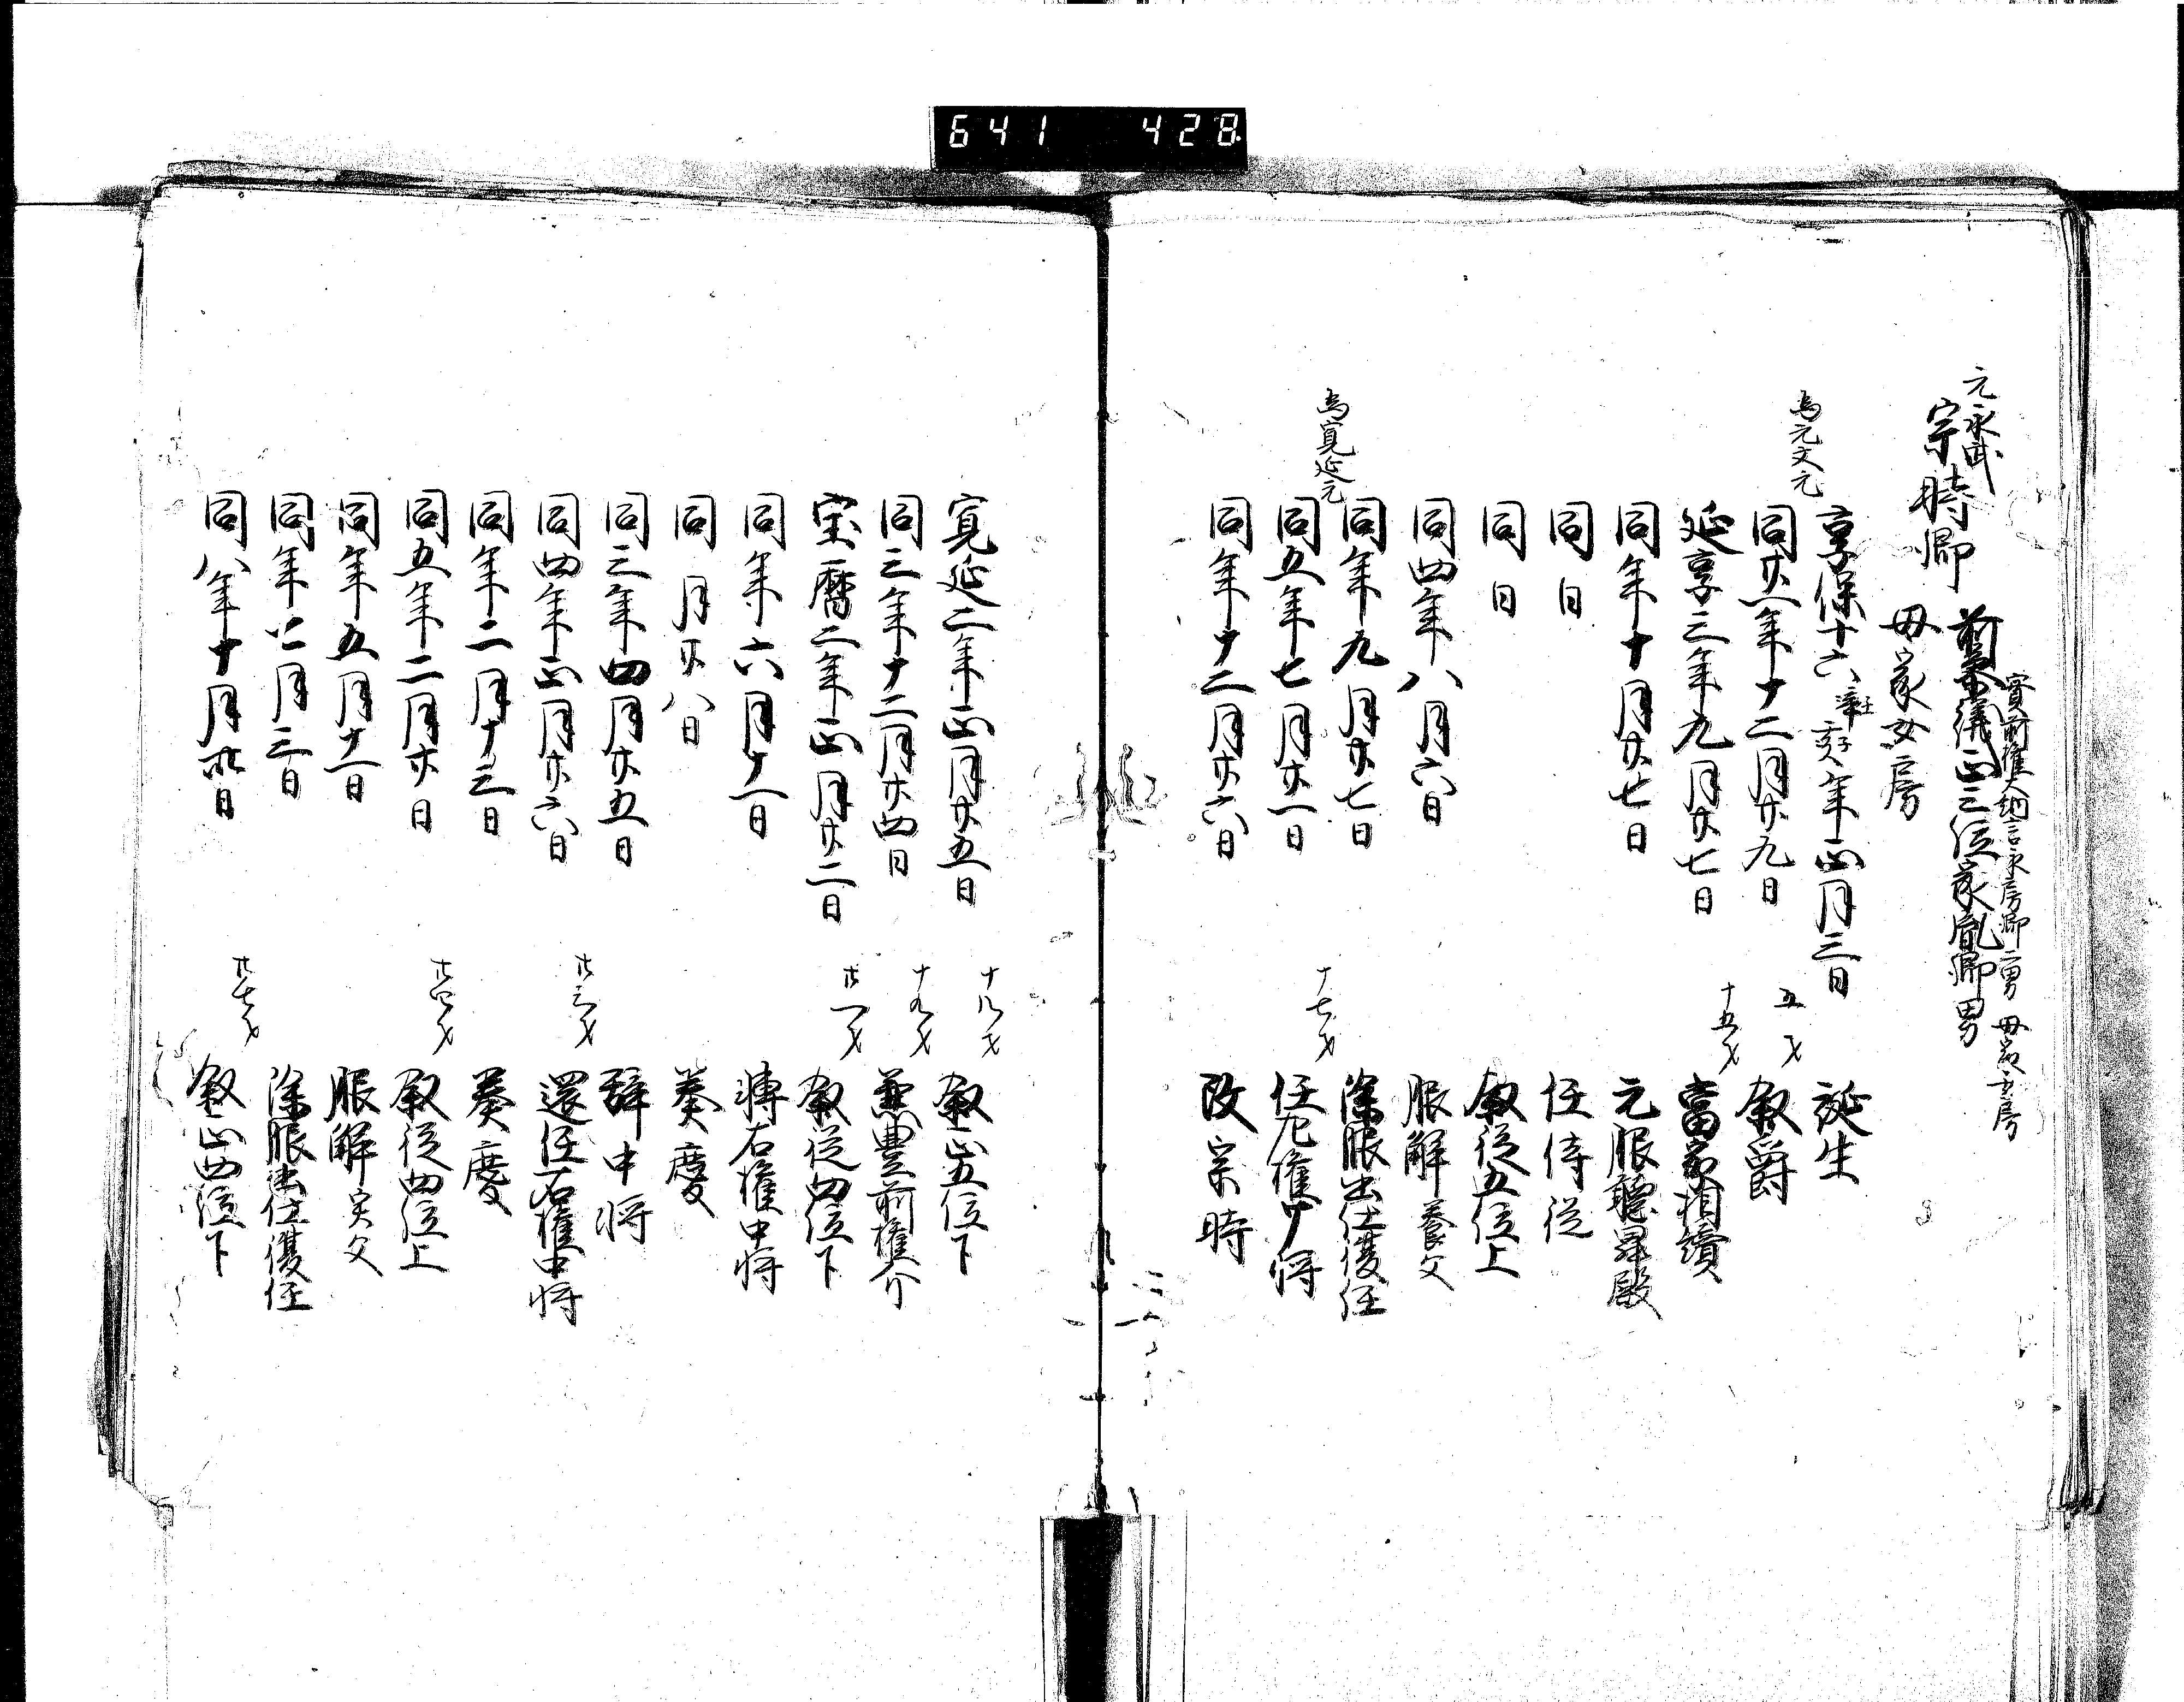 641 428
元永武
宗時卿
實前権大納言永房卿二男 母家女房
前参議正三位家胤卿男
母家女房
為元文元
享保十六 年正月三日 誕生
同廿一年十二月廿九日 五才 叙爵
延享三年九月廿七日 十五才 當家相續
同年十月廿七日 元服聴昇殿
同日 任侍従
同日 叙従五位上
同四年八月六日 服解 養父
同年九月廿七日 除服出仕復任
為寛延元
同五年七月廿一日 十七才 任左権少将
同年十二月廿六日 改宗時
寛延二年正月廿五日 十八才 叙正五位下
同三年十二月廿四日 十九才 兼豊前権介
宝暦二年正月廿二日 廿一才 叙従四位下
同年六月十一日 転右権中将
同月廿八日 奏慶
同三年四月廿五日 辞中将
同四年正月廿六日 廿三才 還任右権中将
同年二月十三日 奏慶
同五年二月廿日 廿四才 叙従四位上
同年五月十一日 服解 実父
同年七月三日 除服出仕復任
同八年十月 日 廿七才 叙正四位下